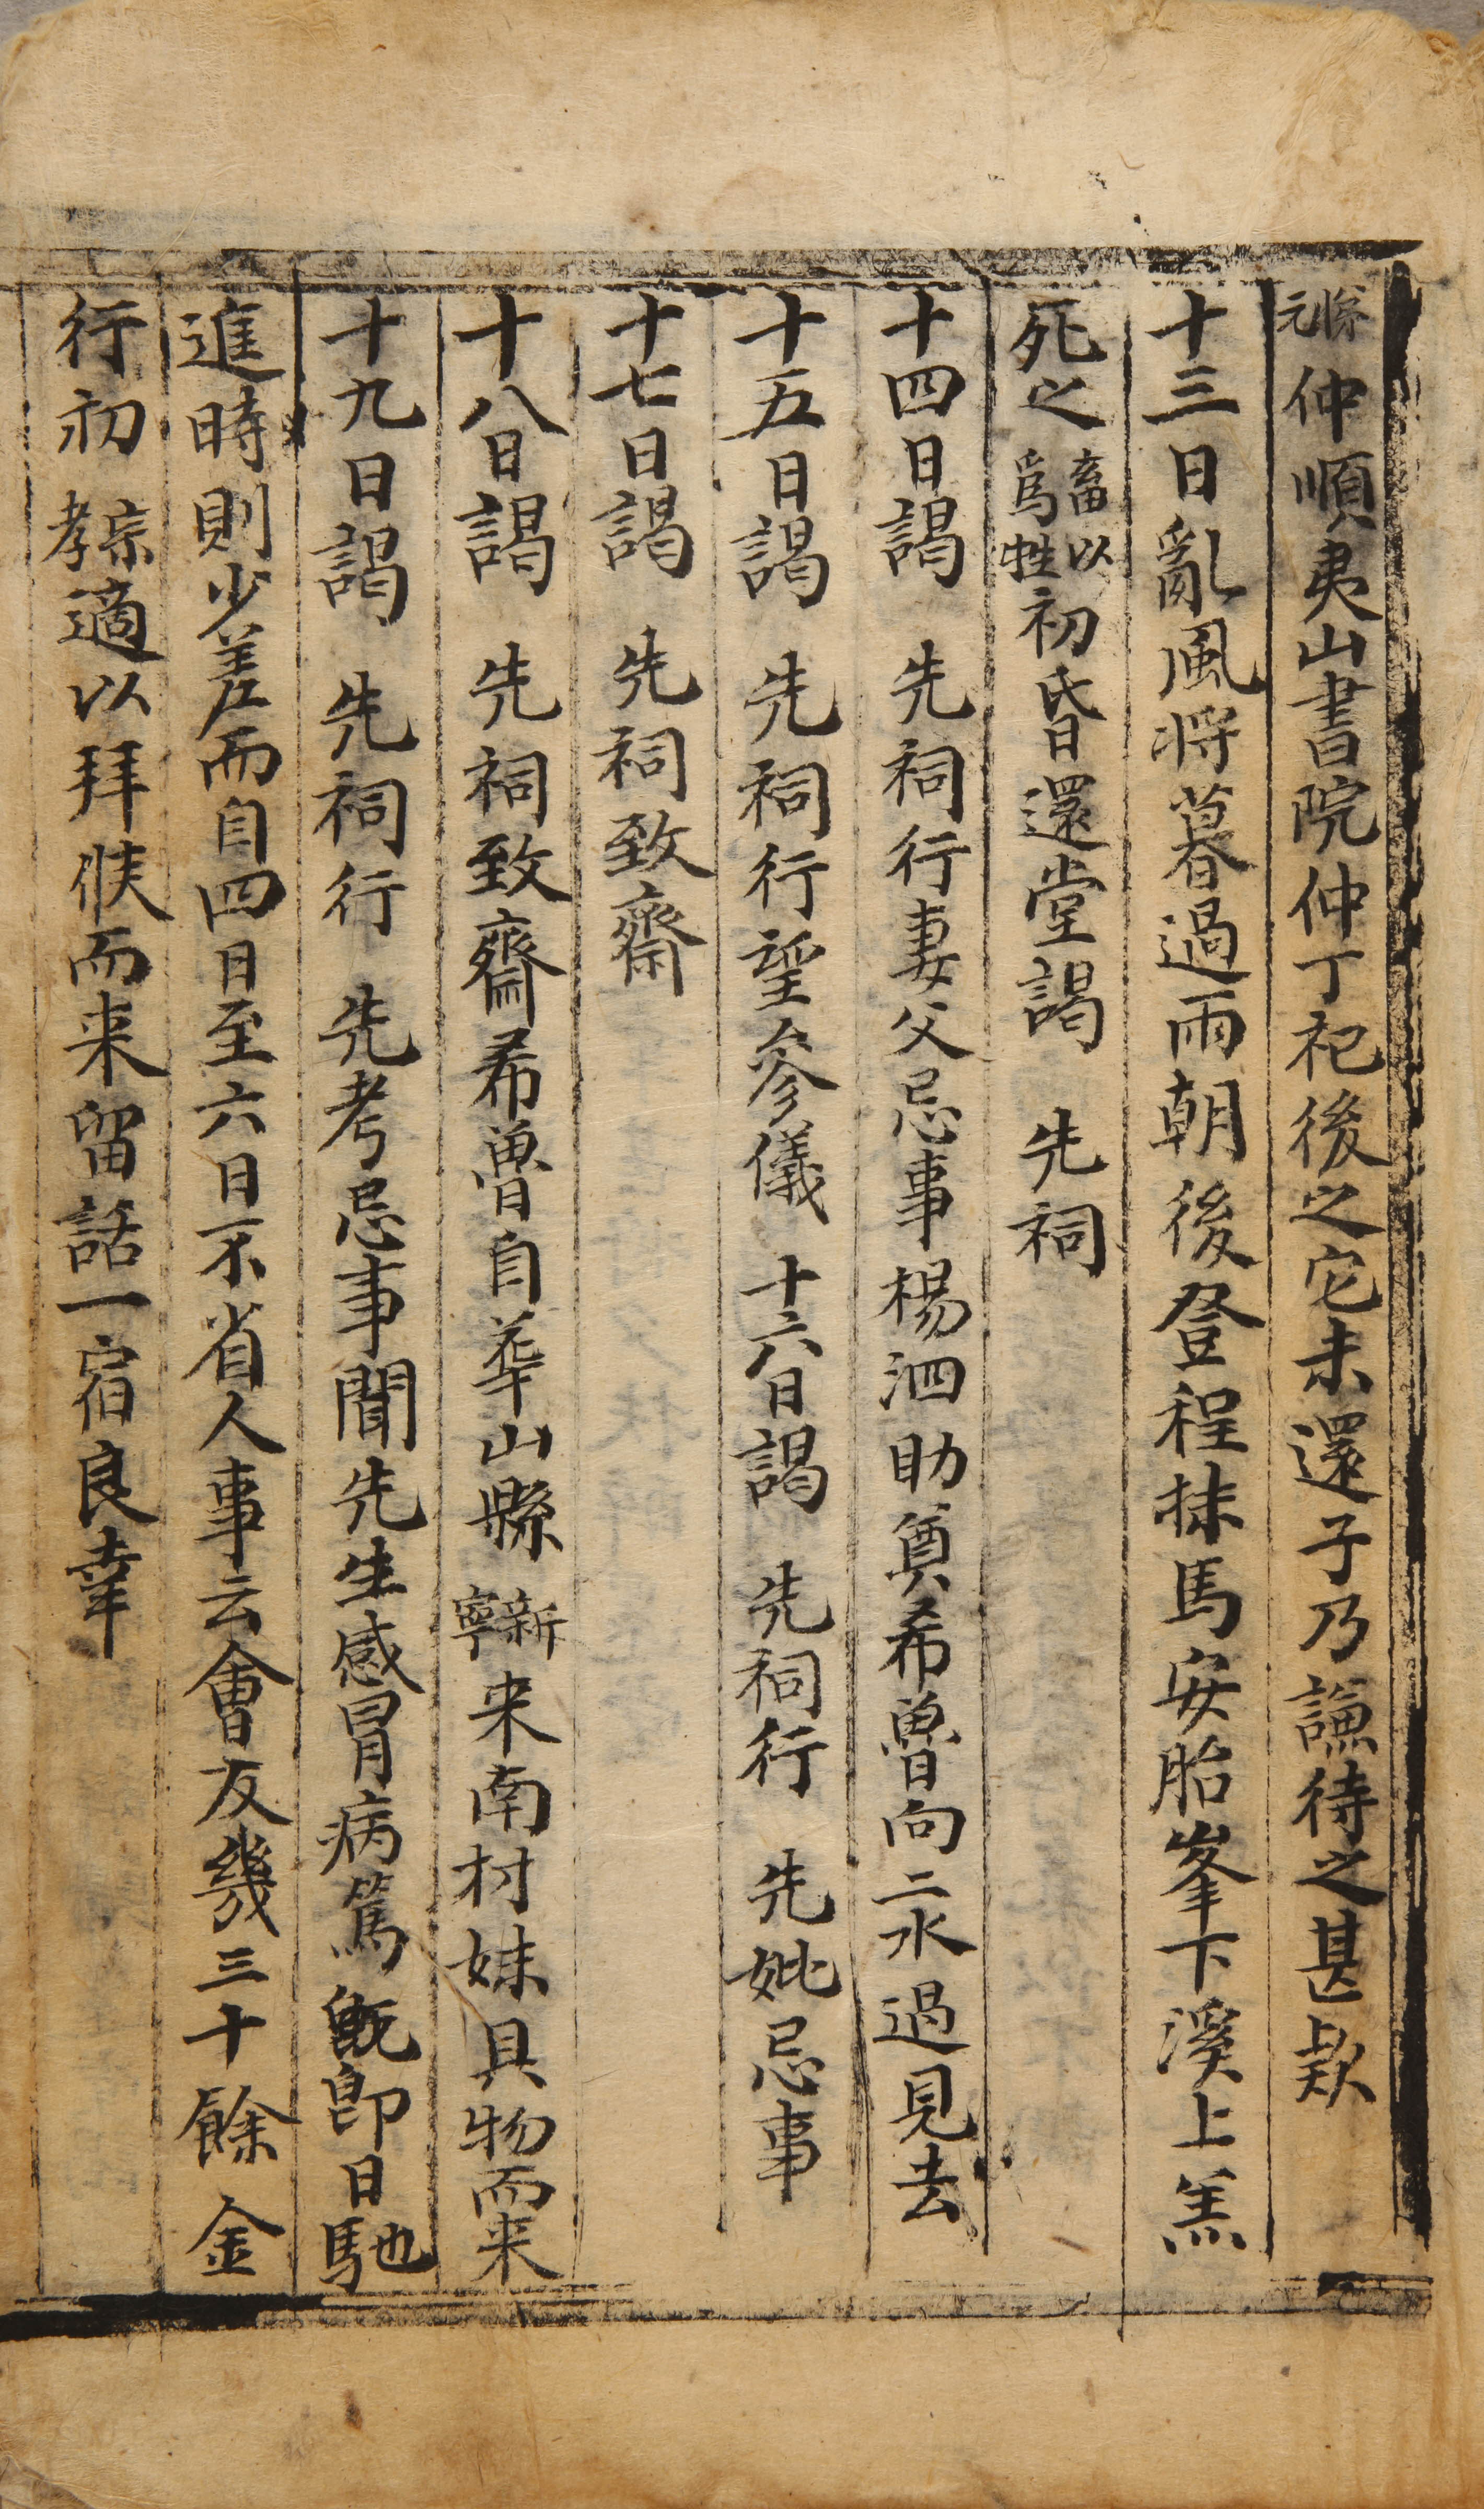 元 仲順夷山書院仲丁祀後之它未還子乃謙待之甚款
十三日亂風將暮過雨朝後登程抹馬安胎峯下溪上羔
死之畜以爲牲初昏還堂謁 先祠
十四日謁 先祠行妻父忌事楊泗助奠希魯向二水過見去
十五日謁 先祠行望參儀 十六日謁 先祠行 先妣忌事
十七日謁 先祠致齋
十八日謁 先祠致齋希魯自華山縣新寧来南村妹具物而来
十九日謁 先祠行 先考忌事聞先生感冒病篤卽日馳
進時則少差而自四日至六日不省人事云會友幾三十餘 金
行初孝宗適以拜候而来留話一宿良幸